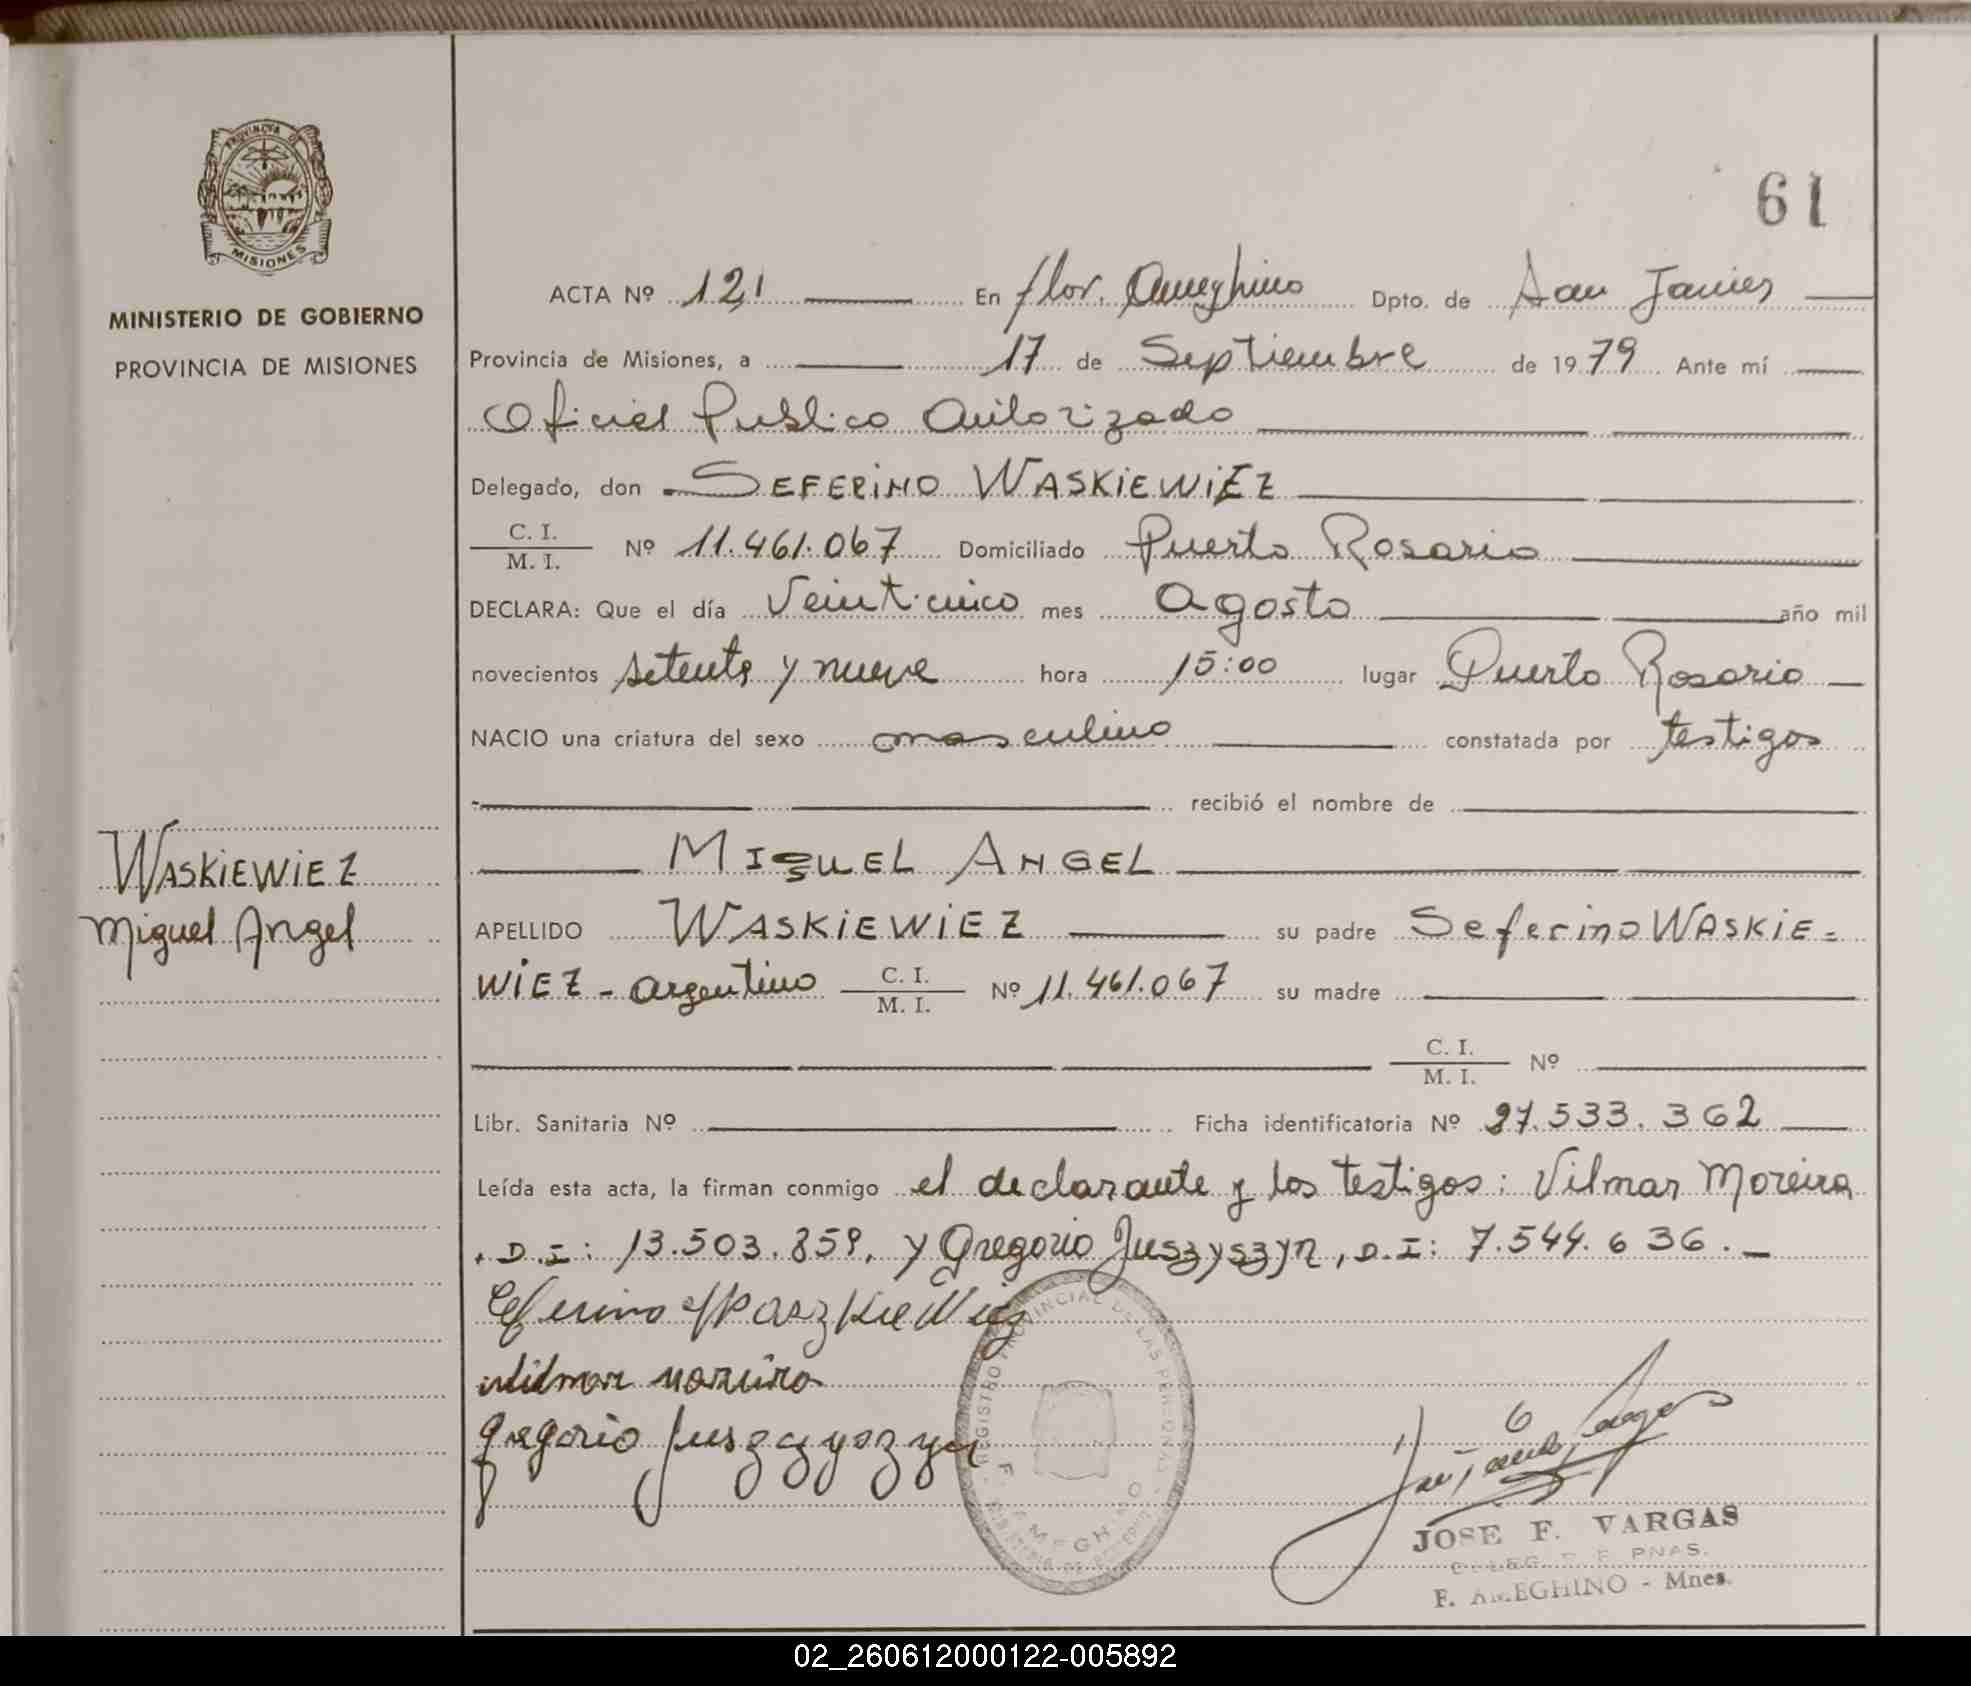 61
PROVINCIA DE
MISIONES
MINISTERIO DE GOBIERNO
PROVINCIA DE MISIONES
ACTA Nº 121 En flor. Ameghino Dpto. de San Javier
Provincia de Misiones, a 17 de Septiembre de 1979 Ante mí
Oficial Publico Autorizado
Delegado, don SEFERINO WASKIEWIEZ
C. I. / M. I. Nº 11.461.067 Domiciliado Puerto Rosario
DECLARA: Que el día Veinticinco mes Agosto año mil
novecientos setenta y nueve hora 15:00 lugar Puerto Rosario
NACIO una criatura del sexo masculino constatada por testigos
recibió el nombre de
MIGUEL ANGEL
WASKIEWIEZ
Miguel Angel
APELLIDO WASKIEWIEZ su padre Seferino WASKIE=
WIEZ - argentino C. I. / M. I. Nº 11.461.067 su madre
C. I. / M. I. Nº
Libr. Sanitaria Nº Ficha identificatoria Nº 27.533.362
Leída esta acta, la firman conmigo el declarante y los testigos: Vilmar Moreira
D.I: 13.503.859, y Gregorio Juszyszyn, D.I: 7.544.636.
REGISTRO PROVINCIAL DE LAS PERSONAS
F. AMEGHINO
JOSE F. VARGAS
F. AMEGHINO - Mnes.
02_260612000122-005892